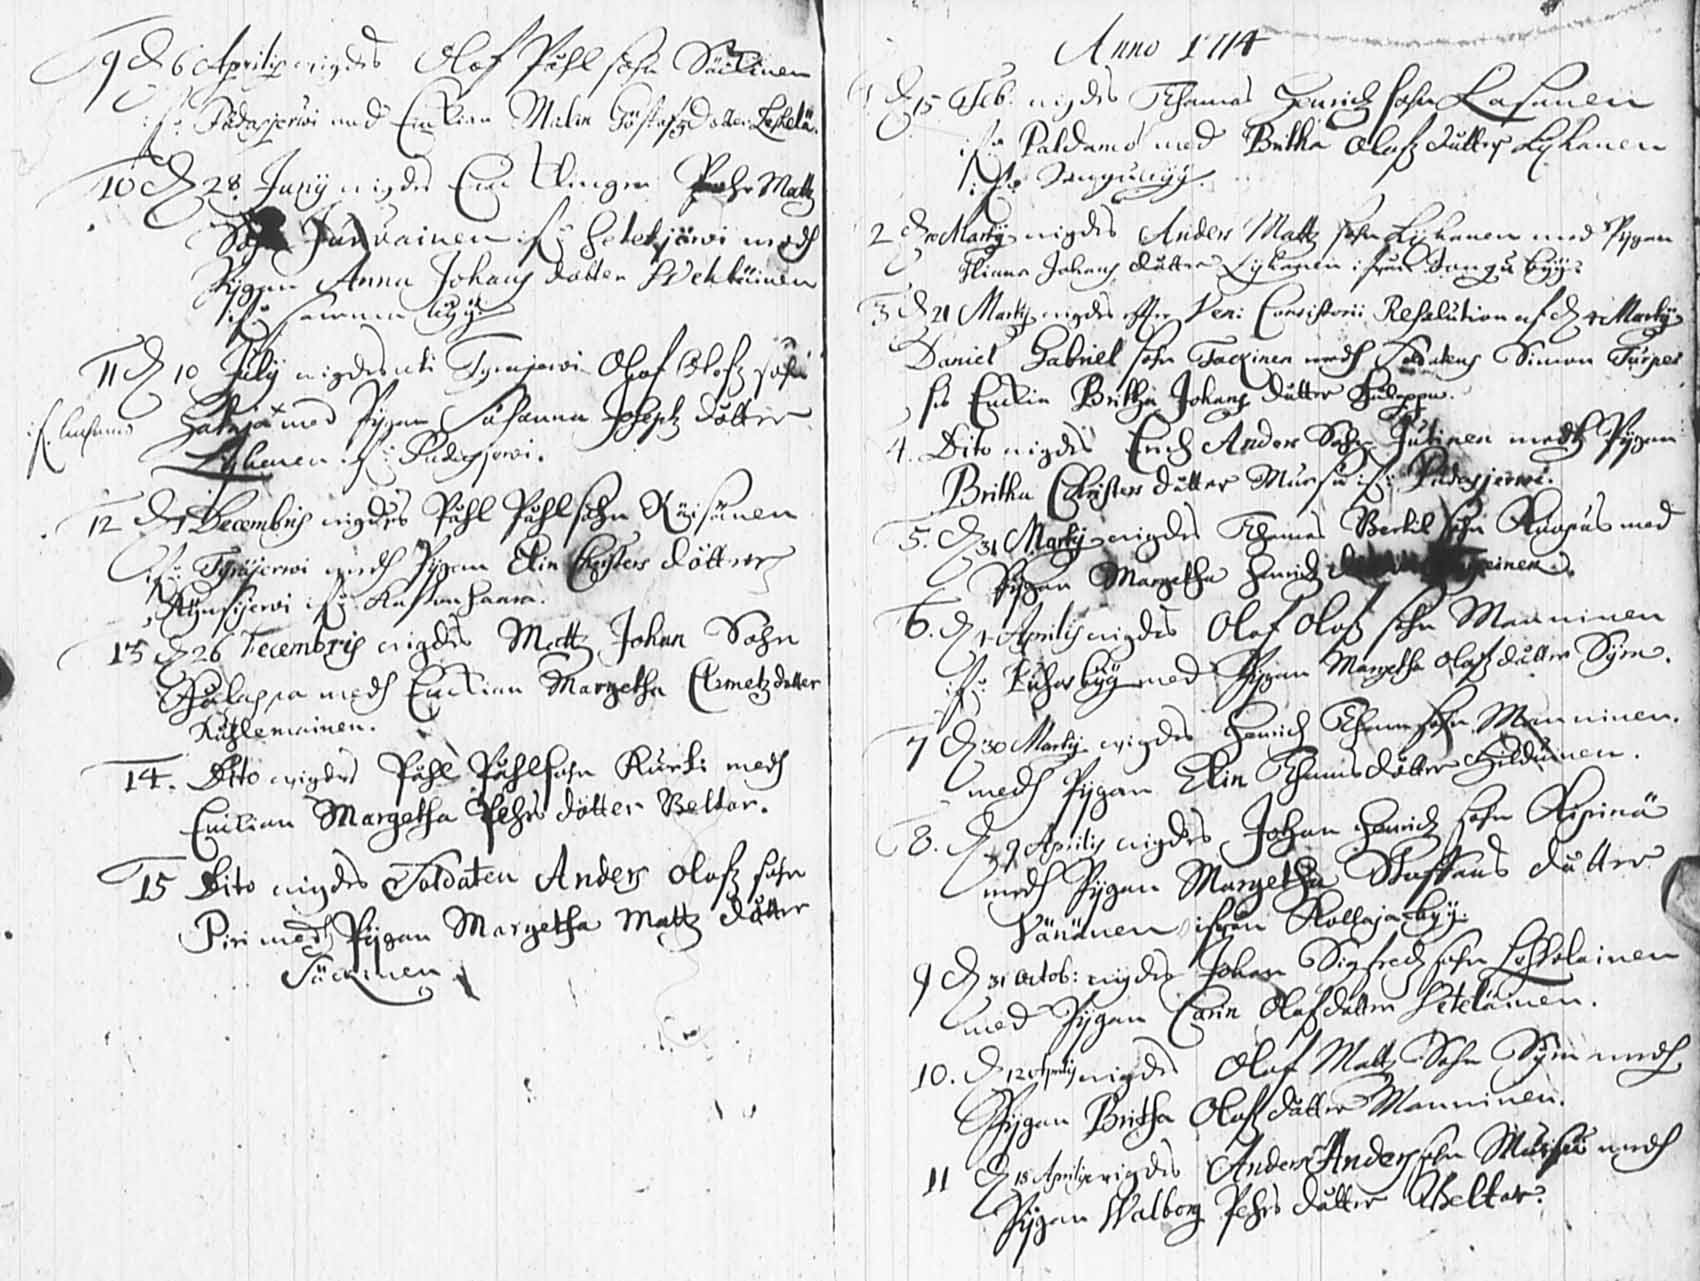 9 d 6 Aprilis vigdes Olof Påhl sohn Säckinen
ifr: Pudasjerwi med Enkian Malin Göstafz Dotter Leskelä.
10 d 28 Junÿ vigdes Pehr Matz
Sohn Jurvainen ifr: Hetekjärwi medh
Pÿgan Anna Johans dotter Wehkäinen
ifr: samma bÿÿ
11 d 10 Julÿ vigdes uti Tyrnjerwi Olof Olofz sohn
Hataja med Pÿgan Susanna Josephz dotter
Lyhenen ifr: Pudasjerwi.
12 d 1 Decembris vigdes Påhl Påhlsohn Räisänen
ifr: Tyräjerwi medh Pÿgan Elin Christers dotter
13 d 26 Decembris vigdes Matz Johan Sohn
medh Enkian Margetha Clemetz dotter
Kuhlemainen.
14. Dito vigdes Påhl Påhlsohn Kurki medh
Enkian Margetha Pehrs dotter Beltar.
15 Dito vigdes Soldaten Anders Olofz sohn
Piri medh Pÿgan Margetha Matz dotter
Säckinen
Anno 1714
1 d 15 Feb. vigdes Thomas Henrich sohn Kasanen
ifr: Paldamo med Britha Olofz dutter Lyhenen
ifr:
2 d Martÿ vigdes Anders Matz sohn Lyhenen med Pÿgan
Johans dutter Lyhenen ifrån Jongu bÿÿ
3 d 21 Martÿ vigdes effter Ven: Consistorii Resolution af d 4 Martÿ
Daniel Gabriel sohn Tackinen medh Soldatens Simon Turpei
Enkia Britha Johans dutter
4. Dito vigdes Erich Anders Sohn Jutinen medh Pÿgan
Britha Christers dutter Mursu ifr: Pudasjerwi.
5. d 31 Martÿ vigdes Thomas Bertil sohn Kuopus med
Pÿgan Margetha Henrichs
6. d 1 Aprilis vigdes Olof Olofz sohn Manninen
ifr: bÿÿ med Pÿgan Margetha Olofz dutter Sÿm.
7 d 30 Martÿ vigdes Henrich Thomas sohn Manninen.
medh Pÿgan Elin Thomas dutter Hildunen.
8. d 9 Aprilis vigdes Johan Henrich sohn Ripinä
medh Pÿgan Margetha Staffans dutter
Vänänen ifrån Kollaja bÿÿ.
9 d 31 Octob: vigdes Johan Sigfredz sohn Leskelainen
med Pÿgan Carin Olofdutter Heteläinen.
10. d 12 Aprilis vigdes Olof Matz Sohn Sÿm medh
Pÿgan Britha Olofz dutter Manninen.
11 d 18 Aprilis vigdes Anders Anders sohn Mursu medh
Pÿgan Walborg Pehrs dutter Beltar.